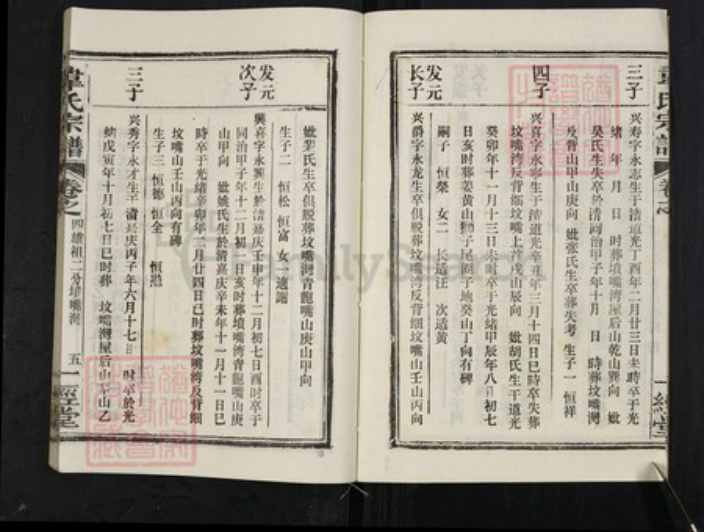 三子
兴寿字永志生于清道光丁酉年二月廿三日未時卒于光
绪 年 月 日 时葬墳嘴湾屋后山乾山巽向 妣
吴氏生失卒於清同治甲子年十月 日 時葬坟嘴湾
及背山甲山庚向 妣张氏生卒葬失考 生子一 恒祥
四子
兴喜字永寧生于清道光辛丑年三月十四日巳時卒失葬
坟嘴湾反背细坟嘴上首戌山辰向 妣胡氏生于道光
癸卯年十一月十三日未时卒于光緒甲辰年八月初七
日亥时葬姜黄山狮子尾圈子地癸山丁向有碑
嗣子 恒榮 女二 长适汪 次适黄
发元
长子
兴爵字永龙生卒俱脱葬坟嘴湾反背细坟嘴山壬山丙向
妣裴氏生卒俱脱葬坟嘴灣青龍嘴山庚山甲向
生子二 恒松 恒富 女一 適謝
发元
次子
興喜字永興生於清嘉庆壬申年十二月初七日酉时卒于
同治甲子年十二月初一日亥时葬墳嘴湾青龍嘴山庚
山甲向 妣姚氏生於清嘉庆辛未年十一月十一日巳
時卒于光绪辛卯年二月廿四日巳时葬坟嘴湾反背细
坟嘴山壬山丙向有碑
生子三 恒德 恒全 恒
三子
兴秀字永才生于清嘉庆丙子年六月十七日 时卒於光
绪戊寅年十月初七日巳时葬 坟嘴湾屋后山 山乙
氏宗譜
卷之
四維祖二分墳嘴灣
五
一經堂
氏宗譜
卷之
一經堂
FamilySearch